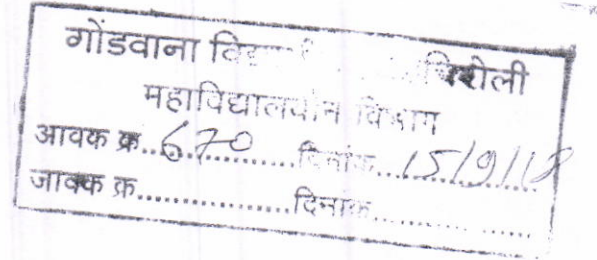 गोंडवाना
महाविद्यालयीन विभाग
आवक क्र..670............दिनांक....15/9/18
जावक क्र.................दिनांक................